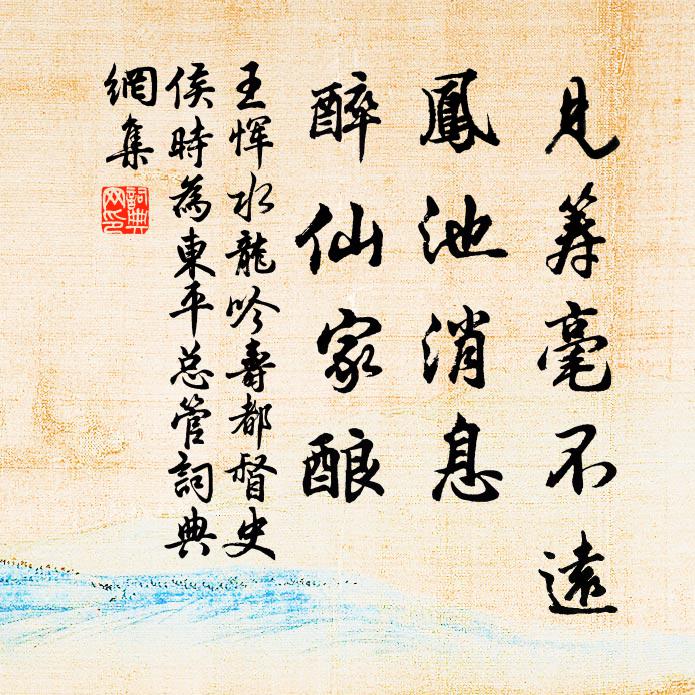 見筭毫不遠
鳳池消息
醉仙家酿
王惲水龍吟壽都督史
侯時為東平总管詞典
網集
詞典
网印